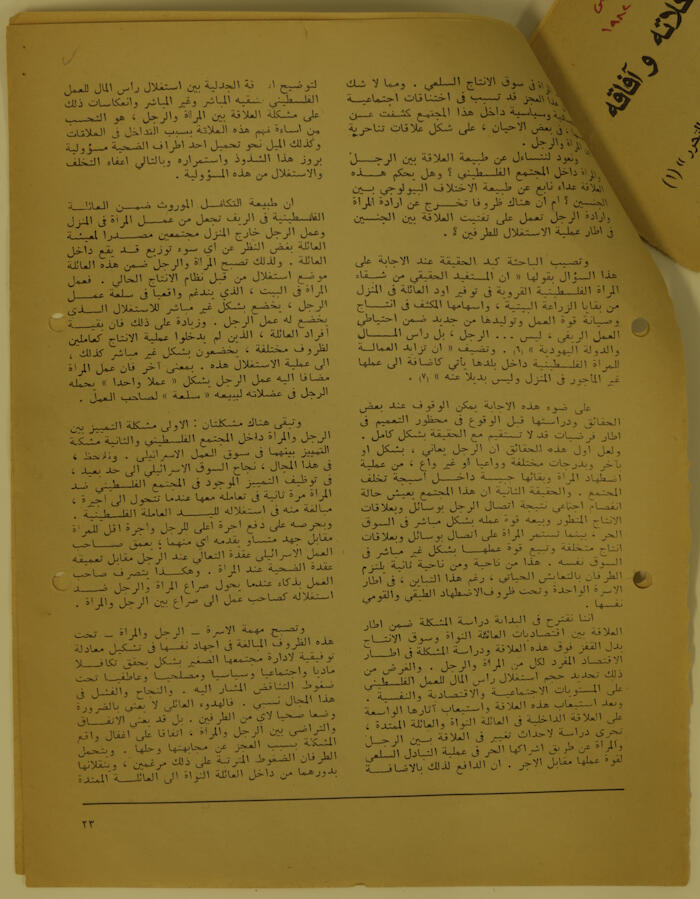 المرأة في سوق الانتاج السلعي . ومما لا شك
هذا العجز قد تسبب في اختناقات اجتماعية
وسياسية داخل هذا المجتمع كشفت عن
، في بعض الاحيان ، على شكل علاقات تناحرية
المرأة والرجل .
ونعود لنتساءل عن طبيعة العلاقة بين الرجل
والمرأة داخل المجتمع الفلسطيني ؟ وهل يحكم هذه
العلاقة عداء نابع عن طبيعة الاختلاف البيولوجي بين
الجنسين ؟ ام ان هناك ظروفا تخرج عن ارادة المرأة
وارادة الرجل تعمل على تفتيت العلاقة بين الجنسين
في اطار عملية الاستغلال للطرفين ؟
وتصيب الباحثة كبد الحقيقة عند الاجابة على
هذا السؤال بقولها « ان المستفيد الحقيقي من شقاء
المرأة الفلسطينية القروية في توفير اود العائلة في المنزل
من بقايا الزراعة البيتية ، واسهامها المكثف في انتاج
وصيانة قوة العمل وتوليدها من جديد ضمن احتياطي
العمل الريفي ، ليس ... الرجل ، بل رأس المال
والدولة اليهودية » (٦) . وتضيف « ان تزايد العمالة
للمرأة الفلسطينية داخل بلدها يأتي كاضافة الى عملها
غير المأجور في المنزل وليس بديلا عنه » (٧) .
على ضوء هذه الاجابة يمكن الوقوف عند بعض
الحقائق ودراستها قبل الوقوع في محظور التعميم في
اطار فرضيات قد لا تستقيم مع الحقيقة بشكل كامل .
ولعل اول هذه الحقائق ان الرجل يعاني ، بشكل او
بآخر وبدرجات مختلفة وواعيا او غير واع ، من عملية
اضطهاد المرأة وبقائها حبيسة داخل اسيجة تخلف
المجتمع . والحقيقة الثانية ان هذا المجتمع يعيش حالة
انفصام اجتماعي نتيجة اتصال الرجل بوسائل وبعلاقات
الانتاج المتطور وبيعه قوة عمله بشكل مباشر في السوق
الحر ، بينما تستمر المرأة على اتصال بوسائل وبعلاقات
انتاج متخلفة وتبيع قوة عملها بشكل غير مباشر في
السوق نفسه . هذا من ناحية ومن ناحية ثانية يلتزم
الطرفان بالتعايش الحياتي ، رغم هذا التباين ، في اطار
الاسرة الواحدة وتحت ظروف الاضطهاد الطبقي والقومي
نفسها .
اننا نقترح في البداية دراسة المشكلة ضمن اطار
العلاقة بين اقتصاديات العائلة النواة وسوق الانتاج
بدل القفز فوق هذه العلاقة ودراسة المشكلة في اطار
الاقتصاد المفرد لكل من المرأة والرجل . والغرض من
ذلك تحديد حجم استغلال رأس المال للعمل الفلسطيني
على المستويات الاجتماعية والاقتصادية والنفسية .
وبعد استيعاب هذه العلاقة واستيعاب آثارها الواسعة
على العلاقة الداخلية في العائلة النواة والعائلة الممتدة ،
تجرى دراسة لاحداث تغيير في العلاقة بين الرجل
والمرأة عن طريق اشراكها الحر في عملية التبادل السلعي
لقوة عملها مقابل الاجر . ان الدافع لذلك بالاضافة
لتوضيح العلاقة الجدلية بين استغلال رأس المال للعمل
الفلسطيني بشقيه المباشر وغير المباشر وانعكاسات ذلك
على مشكلة العلاقة بين المرأة والرجل ، هو التحسب
من اساءة فهم هذه العلاقة بسبب التداخل في العلاقات
وكذلك الميل نحو تحميل احد اطراف الضحية مسؤولية
بروز هذا الشذوذ واستمراره وبالتالي اعفاء التخلف
والاستغلال من هذه المسؤولية .
ان طبيعة التكافل الموروث ضمن العائلة
الفلسطينية في الريف تجعل من عمل المرأة في المنزل
وعمل الرجل خارج المنزل مجتمعين مصدرا لمعيشة
العائلة بغض النظر عن أي سوء توزيع قد يقع داخل
العائلة . ولذلك تصبح المرأة والرجل ضمن هذه العائلة
موضع استغلال من قبل نظام الانتاج الحالي . فعمل
المرأة في البيت ، الذي يندغم واقعيا في سلعة عمل
الرجل ، يخضع بشكل غير مباشر للاستغلال الذي
يخضع له عمل الرجل . وزيادة على ذلك فان بقية
أفراد العائلة ، الذين لم يدخلوا عملية الانتاج كعاملين
لظروف مختلفة ، يخضعون بشكل غير مباشر كذلك ،
الى عملية الاستغلال هذه . بمعنى آخر فان عمل المرأة
مضافا اليه عمل الرجل يشكل « عملا واحدا » يحمله
الرجل في عضلاته ليبيعه « سلعة » لصاحب العمل .
وتبقى هناك مشكلتان : الاولى مشكلة التمييز بين
الرجل والمرأة داخل المجتمع الفلسطيني والثانية مشكلة
التمييز بينهما في سوق العمل الاسرائيلي . ونلاحظ ،
في هذا المجال ، نجاح السوق الاسرائيلي الى حد بعيد ،
في توظيف التمييز الموجود في المجتمع الفلسطيني ضد
المرأة مرة ثانية في تعامله معها عندما تتحول الى اجيرة ،
مبالغة منه في استغلاله لليد العاملة الفلسطينية .
وبحرصه على دفع اجرة اعلى للرجل واجرة اقل للمرأة
مقابل جهد متساو يقدمه أي منهما ؛ يعمق صاحب
العمل الاسرائيلي عقدة التعالي عند الرجل مقابل تعميقه
عقدة الضحية عند المرأة . وهكذا يتصرف صاحب
العمل بذكاء عندما يحول صراع المرأة والرجل ضد
استغلاله كصاحب عمل الى صراع بين الرجل والمرأة .
وتصبح مهمة الاسرة ــ الرجل والمرأة ــ تحت
هذه الظروف المبالغة في اجهاد نفسها في تشكيل معادلة
توفيقية لادارة مجتمعها الصغير بشكل يحقق تكافلا
ماديا واجتماعيا وسياسيا ومصلحيا وعاطفيا تحت
ضغوط التناقض المشار اليه . والنجاح والفشل في
هذا المجال نسبي . فالهدوء العائلي لا يعني بالضرورة
وضعا صحيا لاي من الطرفين . بل قد يعني الاتفاق
والتراضي بين الرجل والمرأة ، اتفاقا على اغفال واقع
المشكلة بسبب العجز عن مجابهتها وحلها . ويتحمل
الطرفان الضغوط المترتبة على ذلك مرغمين ، وينقلانها
بدورهما من داخل العائلة النواة الى العائلة الممتدة
٢٣
١٩٨٢
وآفاقه
(١)